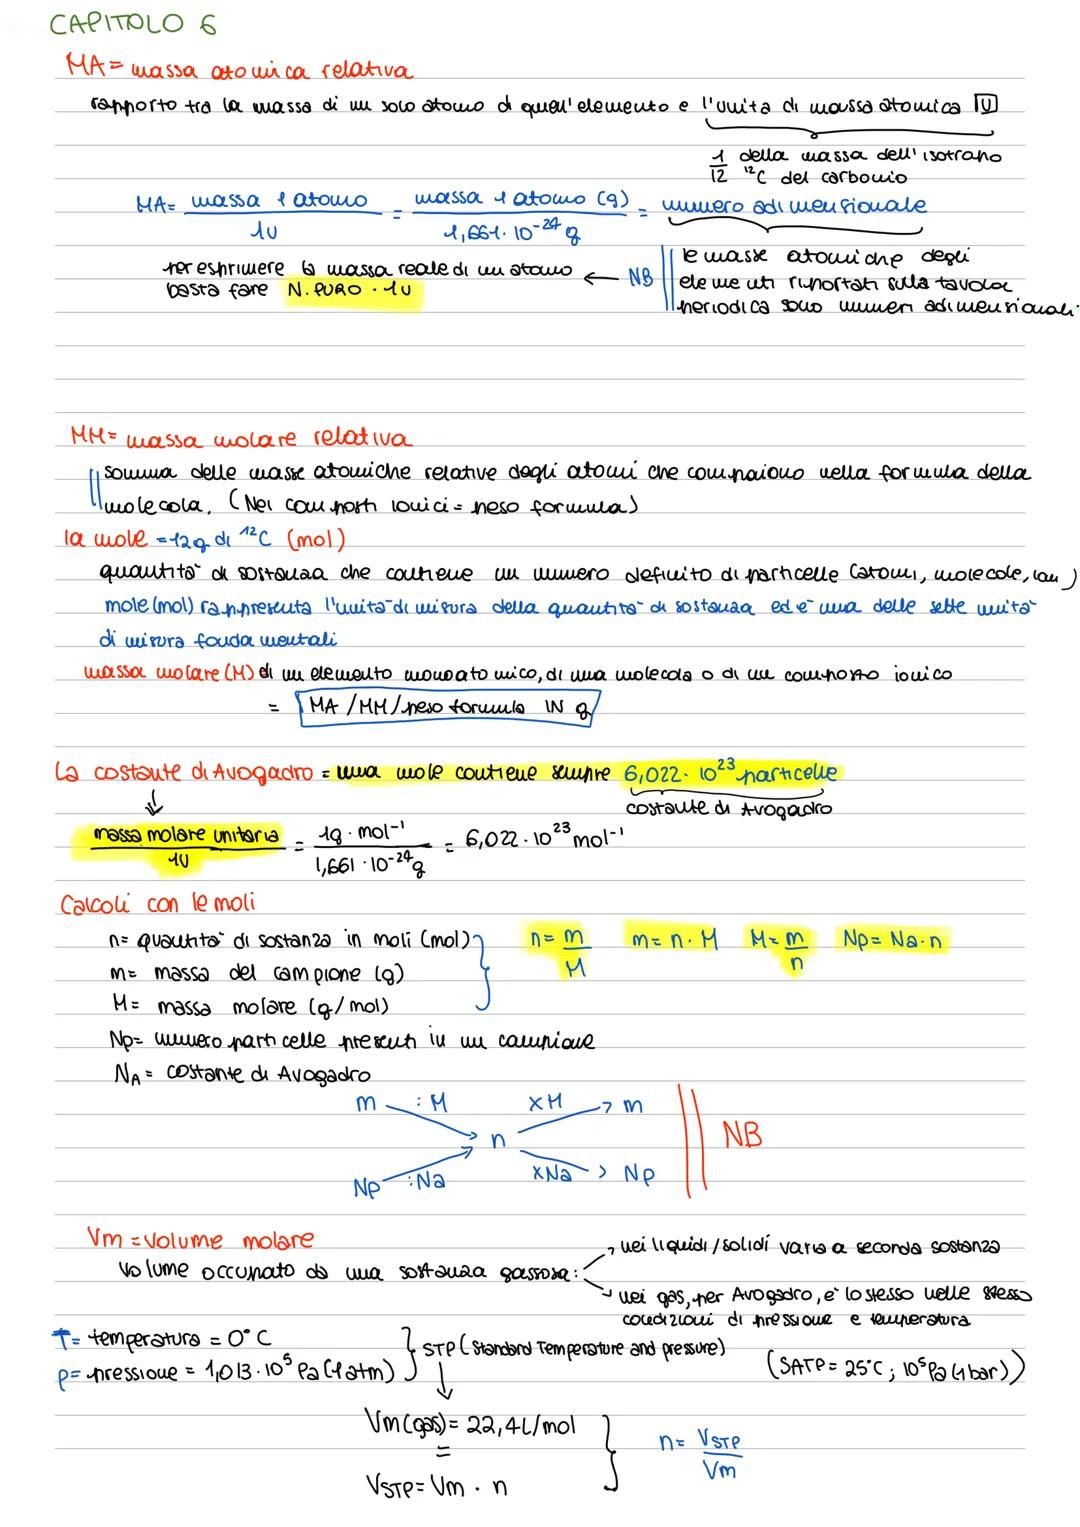 CAPITOLO 6
MA= massa atomica relativa
rapporto tra la massa di un solo atomo di quell'elemento e l'unità di massa atomica U
1/12 della massa dell'isotropo
¹²C del carbonio
MA= massa 1 atomo / 1U = massa 1 atomo (g) / 1,661·10⁻²⁴ g = numero adimensionale
per esprimere la massa reale di un atomo ← NB
basta fare N. PURO · 1U
le masse atomiche degli
elementi riportati sulla tavola
periodica sono numeri adimensionali.
MM= massa molare relativa
somma delle masse atomiche relative degli atomi che compaiono nella formula della
molecola. (Nei composti ionici = peso formula)
la mole = 12g di ¹²C (mol)
quantità di sostanza che contiene un numero definito di particelle (atomi, molecole, ioni)
mole (mol) rappresenta l'unità di misura della quantità di sostanza ed è una delle sette unità
di misura fondamentali
massa molare (M) di un elemento monoatomico, di una molecola o di un composto ionico
= MA / MM / peso formula IN g
La costante di Avogadro = una mole contiene sempre 6,022·10²³ particelle
costante di Avogadro
massa molare unitaria / 1U = 1g·mol⁻¹ / 1,661·10⁻²⁴g = 6,022·10²³ mol⁻¹
Calcoli con le moli
n= quantità di sostanza in moli (mol) n= m/M m= n·M M= m/n Np= Na·n
m= massa del campione (g)
M= massa molare (g/mol)
Np= numero particelle presenti in un campione
NA= costante di Avogadro
m :M xM → m
n NB
Np :Na xNa → Np
Vm = volume molare
→ nei liquidi/solidi varia a seconda sostanza
volume occupato da una sostanza gassosa:
→ nei gas, per Avogadro, è lo stesso nelle stesso
condizioni di pressione e temperatura
T= temperatura = 0°C
p= pressione = 1,013·10⁵ Pa (1 atm) } STP (Standard Temperature and pressure) (SATP= 25°C; 10⁵Pa (1 bar))
Vm (gas) = 22,4L/mol
=
n= VSTP/Vm
VSTP= Vm · n